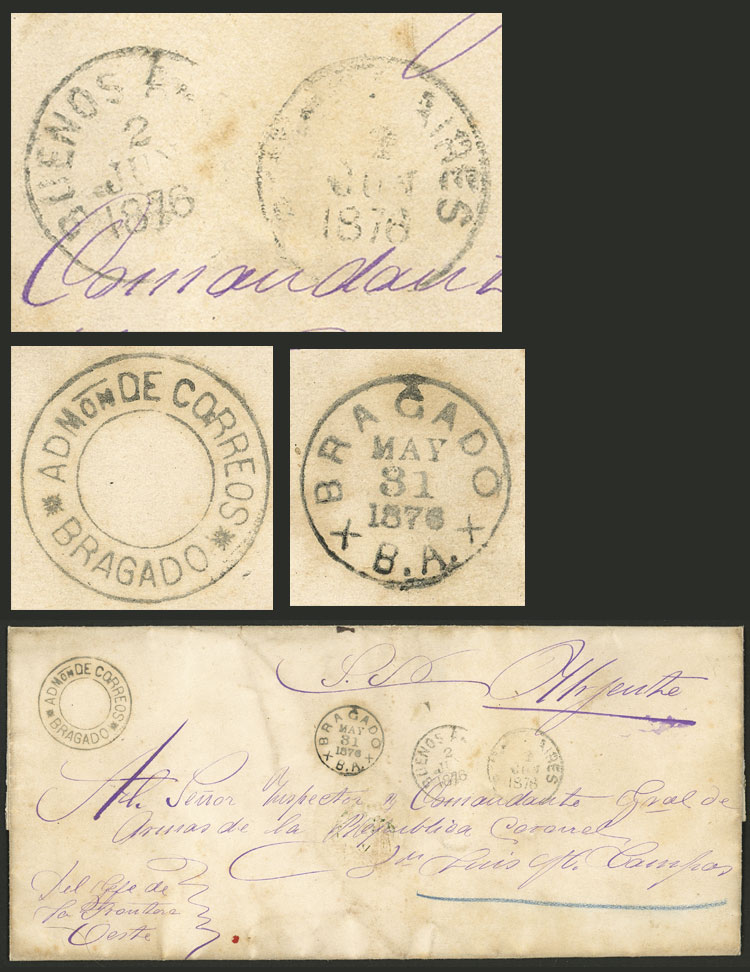 BUENOS A
2
JU
1876
AIRES
JUN
1876
Comandant
ADMON DE CORREOS
BRAGADO
BRAGADO
MAY
31
1876
B.A.
ADMON DE CORREOS
BRAGADO
S. N. Urjente
BRAGADO
MAY
31
1876
B.A.
BUENOS A
2
JU
1876
AIRES
JUN
1876
Al Señor Inspector y Comandante Gral de
Armas de la Republica Coronel
Dn Luis M. Campos
Del Gefe de
la Frontera
Oeste